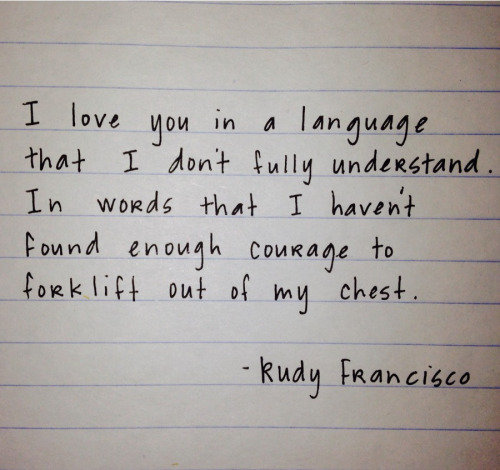 I love you in a language
that I don't fully understand.
In words that I haven't
found enough courage to
forklift out of my chest.
- Rudy Francisco